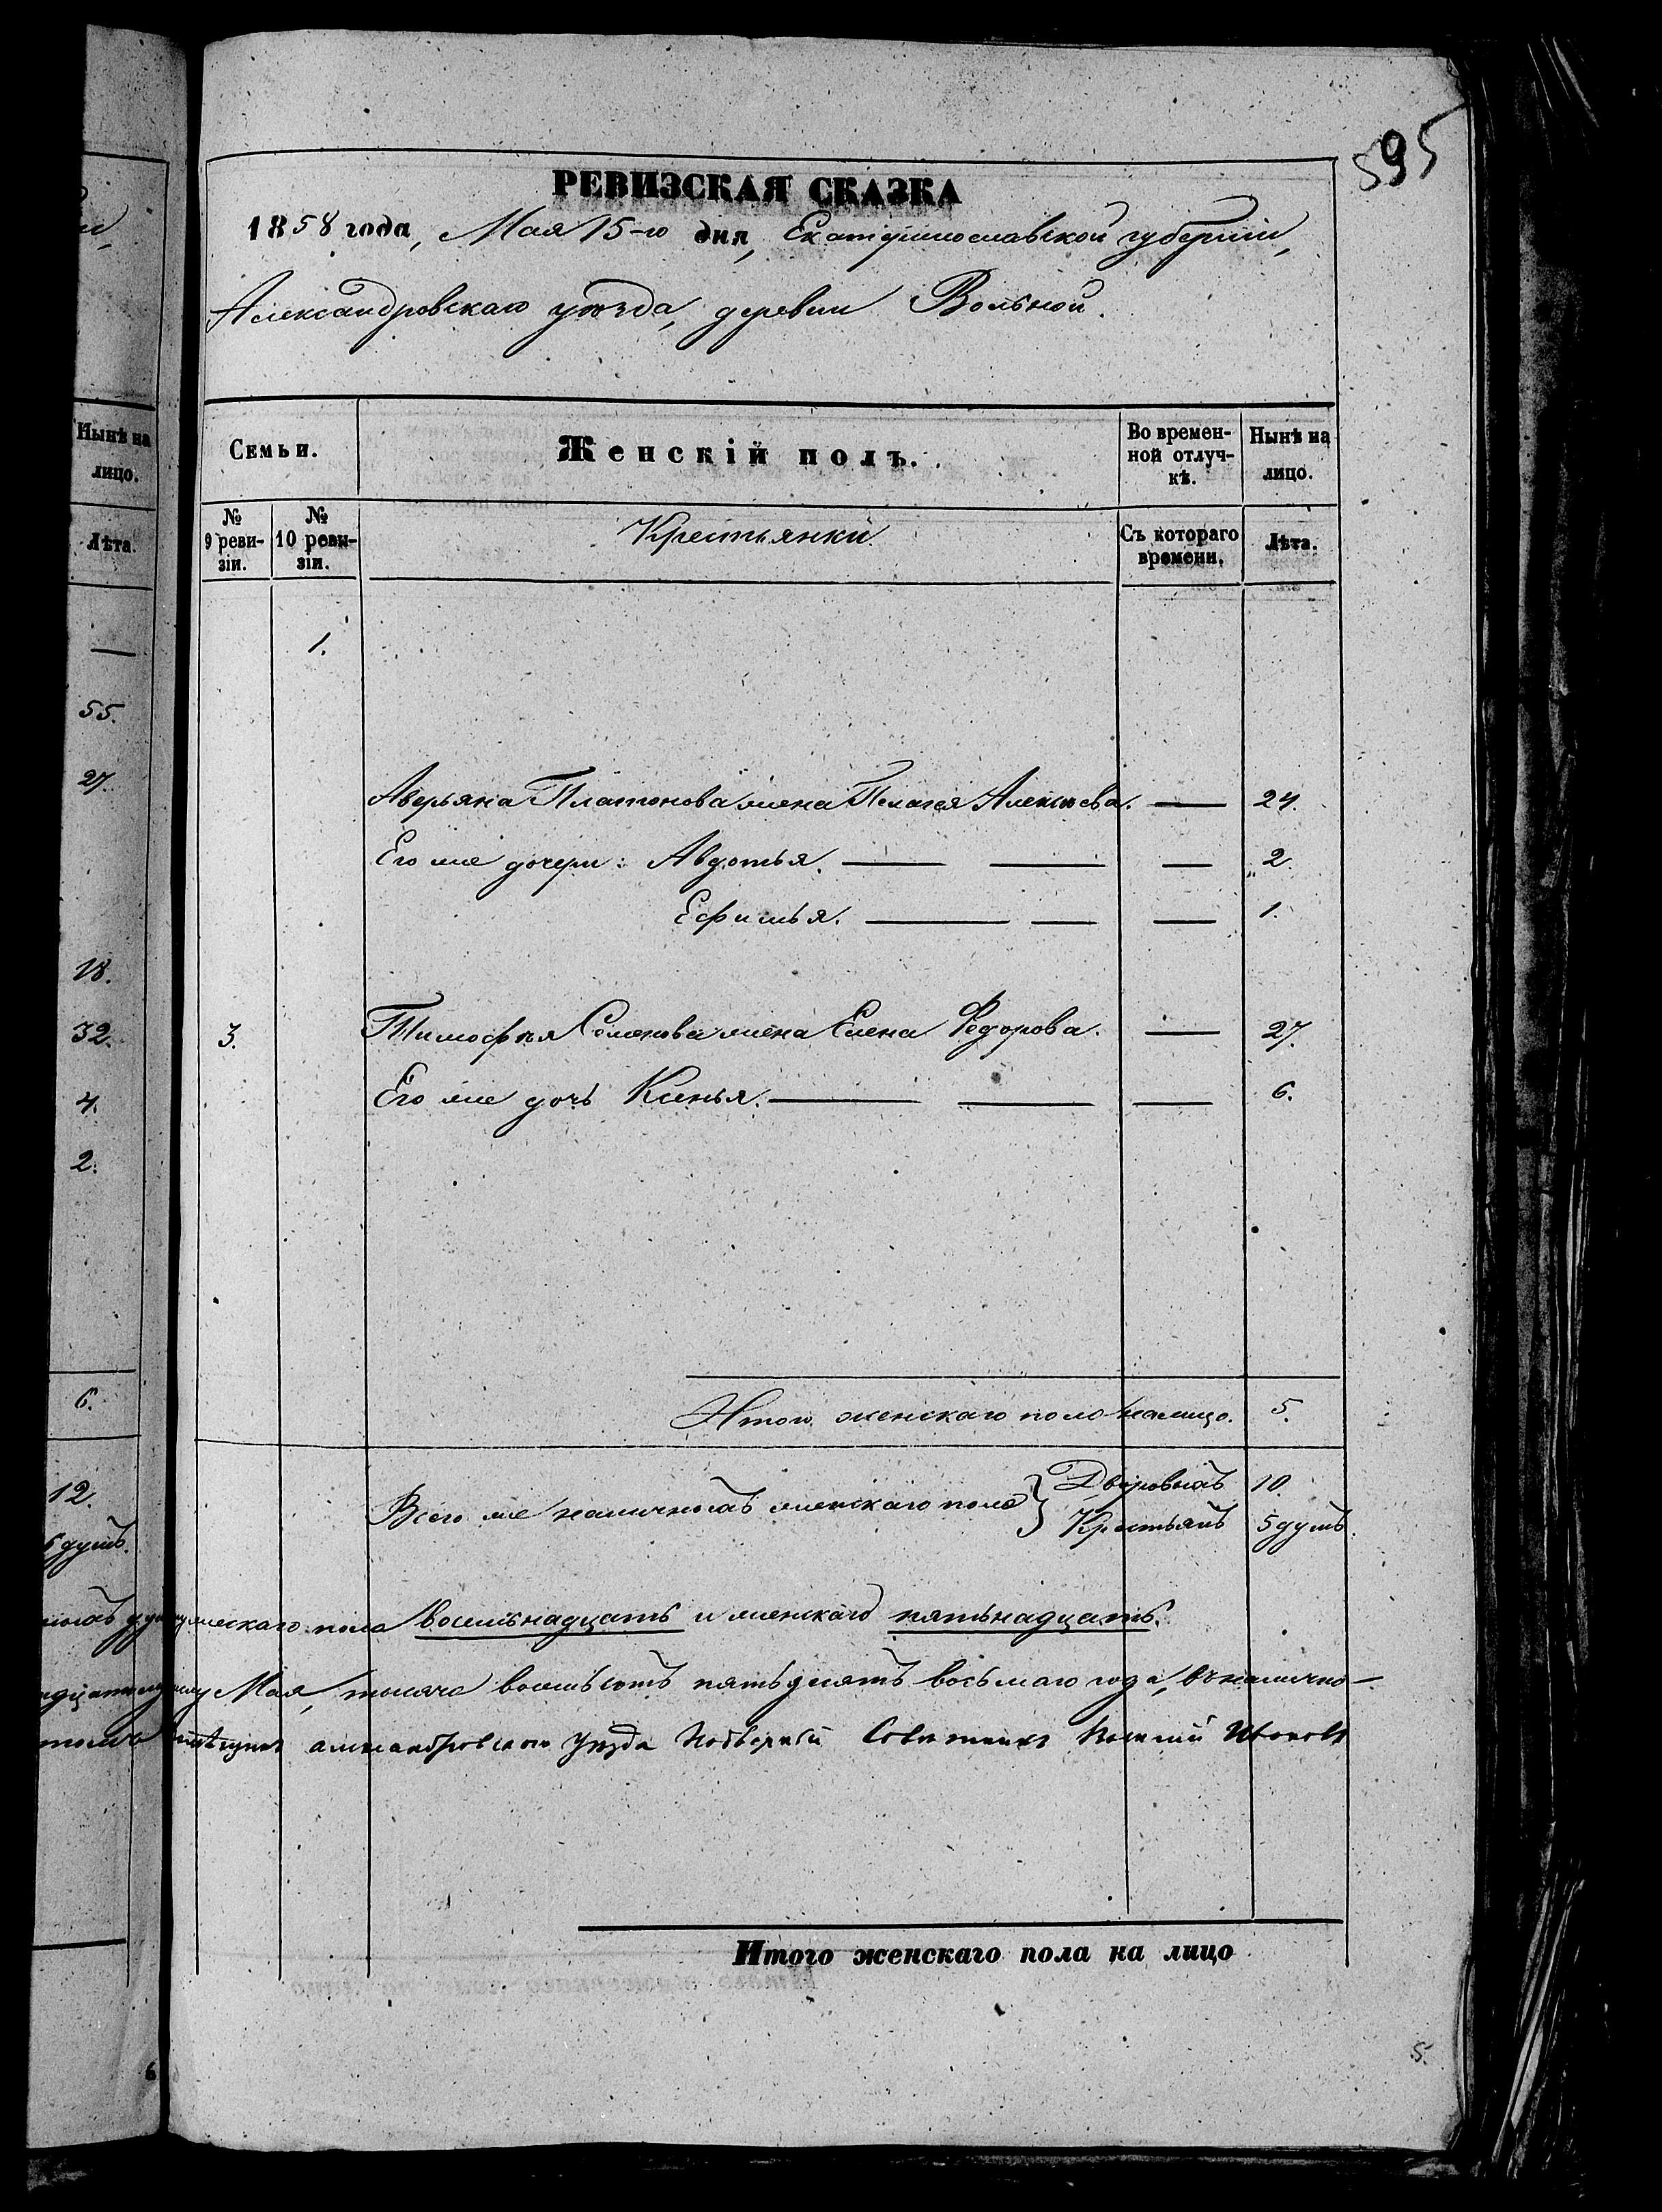 595
РЕВИЗСКАЯ СКАЗКА
1858 года, Мая 15-го дня, Екатеринославской губерніи,
Александровскаго уѣзда, деревни Вольной.
Нынѣ на лицо.
Лѣта.
—
55.
27.
18.
32.
4.
2.
6.
12.
6 душъ.
Семьи.
Женскій полъ.
Во времен-
ной отлуч-
кѣ.
Нынѣ на
лицо.
№
9 реви-
зіи.
№
10 реви-
зіи.
Крестьянки
Съ котораго
времени.
Лѣта.
1.
Аверьяна Платонова жена Пелагея Алексѣева. — 24.
Его же дочери: Авдотья. — — — „2.
Ефимья. — — — 1.
3. Тимофѣя Семенова жена Елена Федорова. — 27.
Его же дочь Ксенья. — — — 6.
Итого женскаго пола на лицо. 5.
Всего же наличныхъ женскаго пола } Дворовыхъ 10.
Крестьянъ 5 душъ.
мужескаго пола восемьнадцать и женскаго пятьнадцать.
Мая, тысяча восемьсотъ пятьдесятъ восьмаго года, въ налично-
александровскаго уезда Надворный Советникъ
Итого женскаго пола на лицо
5.
6